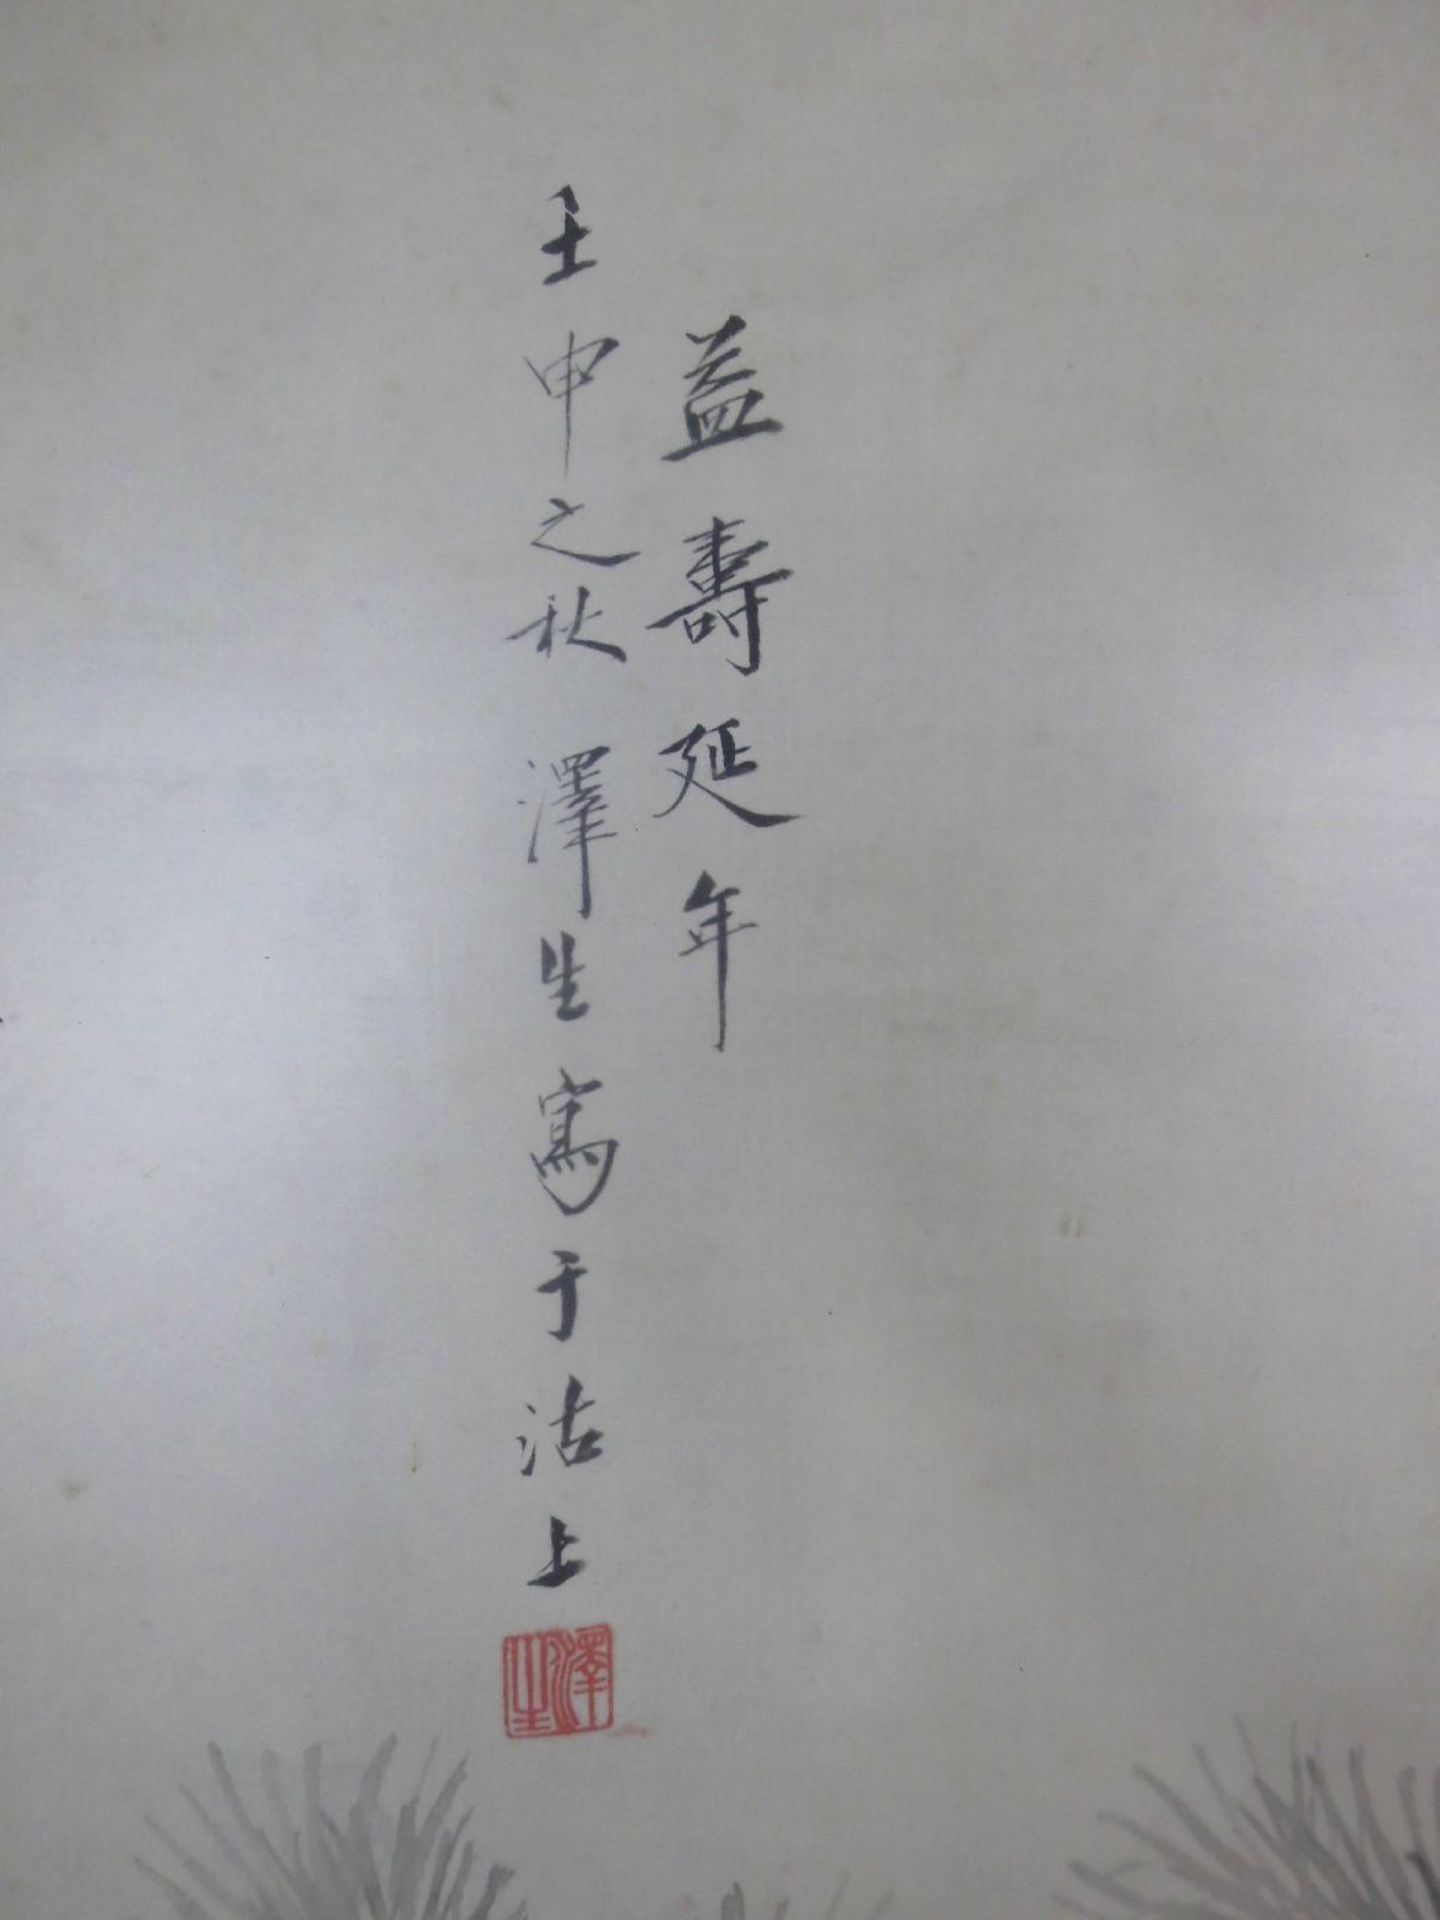 益壽延年
壬申之秋 澤生寫于沽上
澤生